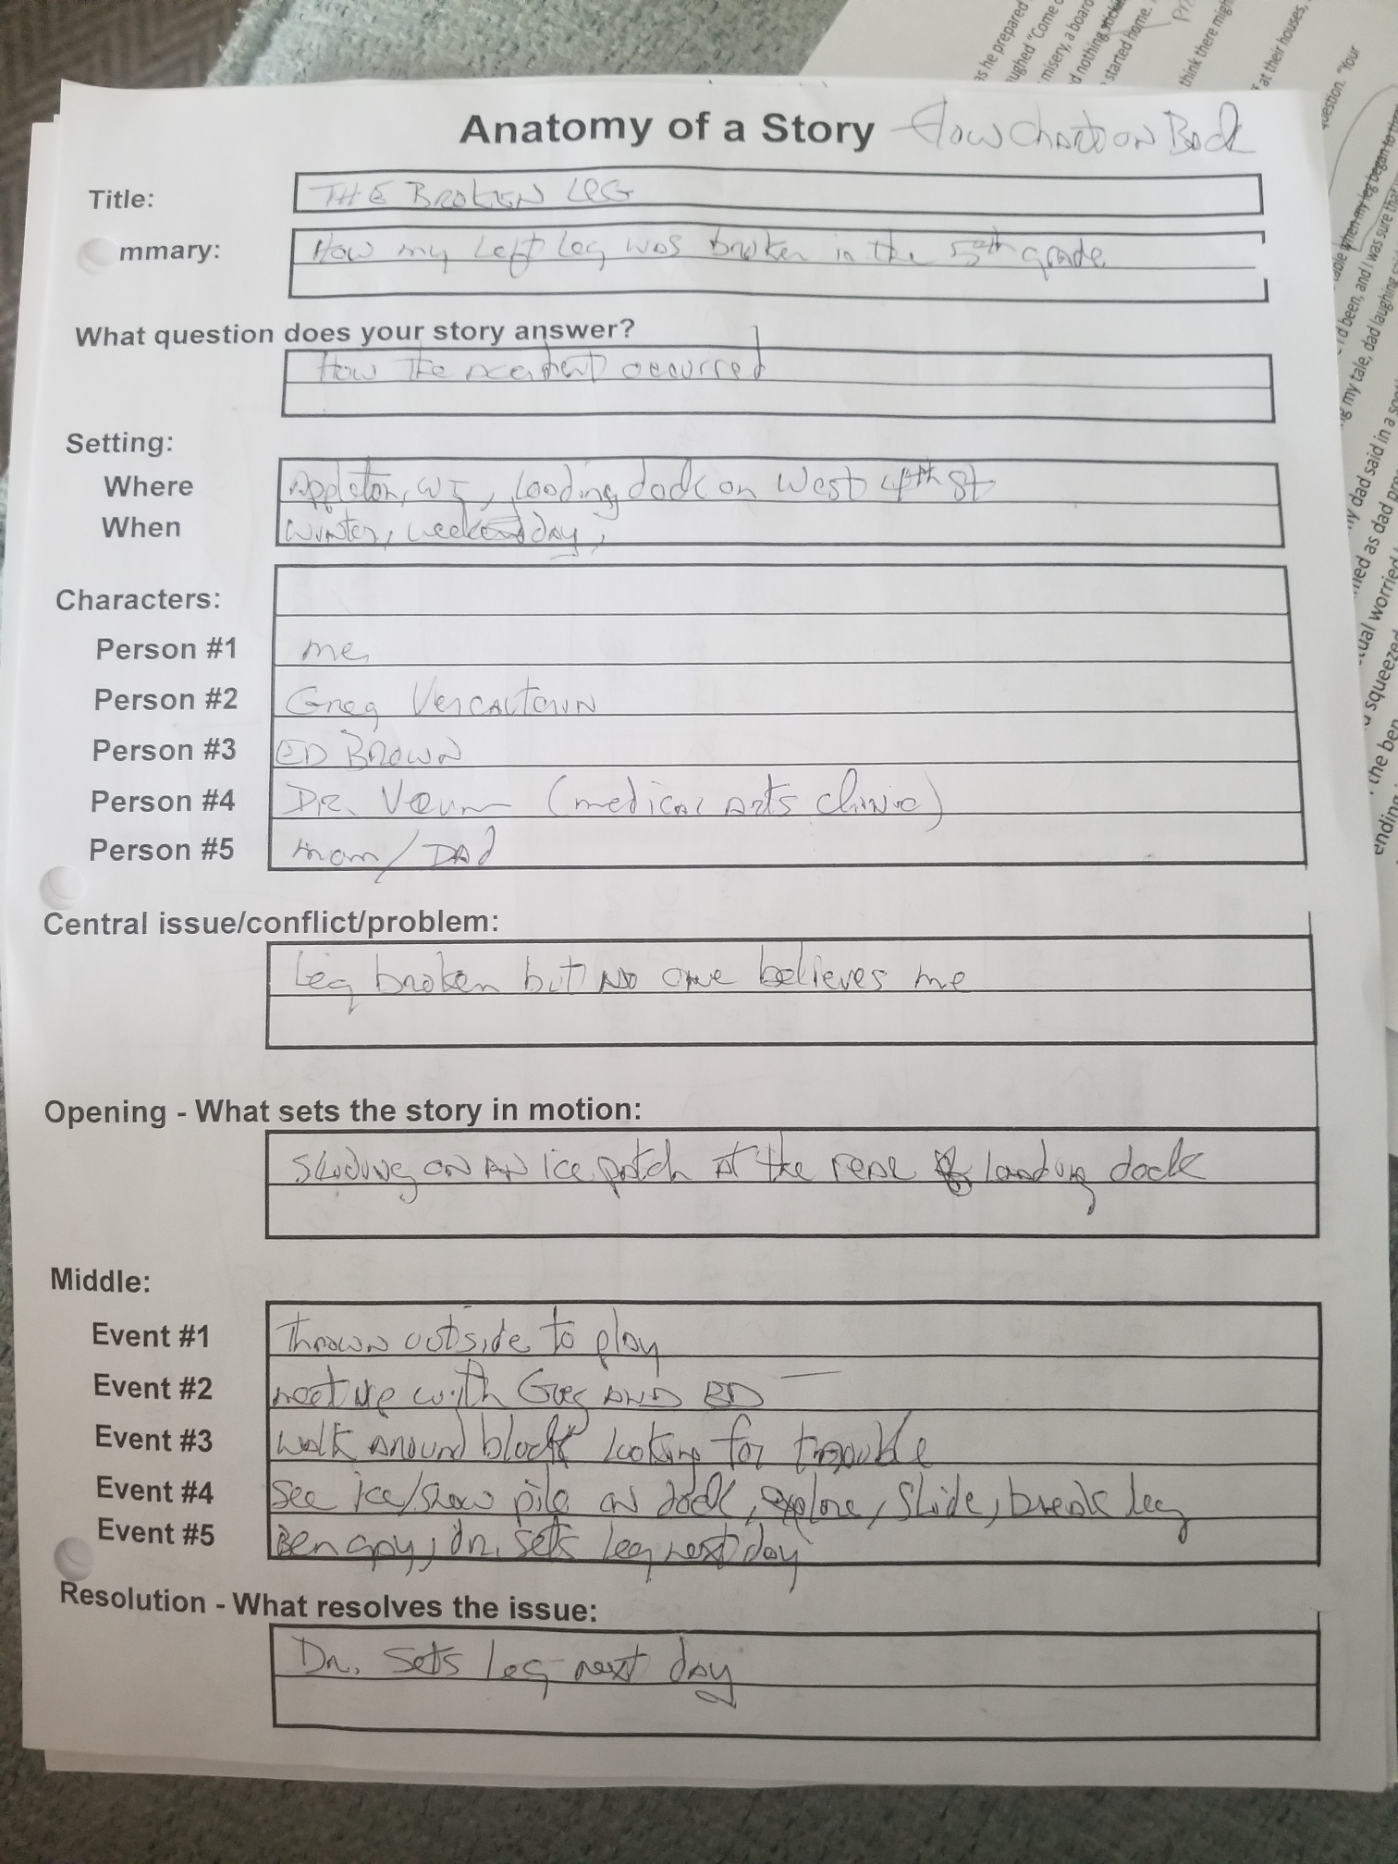 Anatomy of a Story Flow Chart on Back
Title: THE BROKEN LEG
mmary: How my Left Leg was broken in the 5th grade
What question does your story answer?
How the accident occurred
Setting:
Where Appleton, WI, Loading dock on West 4th St
When Winter, weekend day,
Characters:
Person #1 me
Person #2 Greg
Person #3 ED BROWN
Person #4 DR. (medical Arts clinic)
Person #5 mom/DAD
Central issue/conflict/problem:
Leg broken but NO one believes me
Opening - What sets the story in motion:
Sliding ON AN ice patch AT the rear of loading dock
Middle:
Event #1 Thrown outside to play
Event #2 meet up with Greg AND ED
Event #3 Walk around block looking for trouble
Event #4 See ice/snow pile on dock, explore, Slide, break leg
Event #5 Ben Gay, Dr. sets leg next day
Resolution - What resolves the issue:
Dr. sets Leg next day
as he prepared
ughed "Come
misery, a board
d nothing
started home.
think there migh
at their houses,
question. "Your
when my leg began to
d been, and I was sure that
g my tale, dad laughing
y dad said in a
ned as dad
ual worried
squeezed
the ben
ending